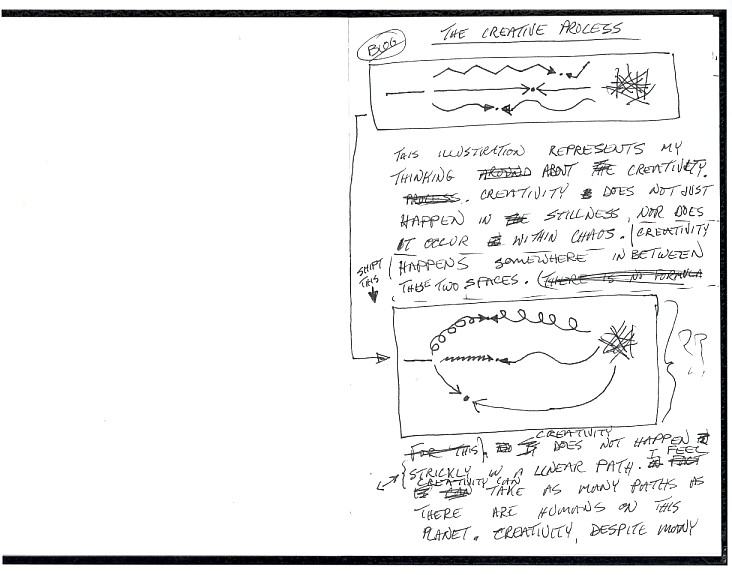 THE CREATIVE PROCESS
BLOG
THIS ILLUSTRATION REPRESENTS MY
THINKING AROUND ABOUT THE CREATIVITY.
PROCESS. CREATIVITY DOES NOT JUST
HAPPEN IN THE STILLNESS, NOR DOES
IT OCCUR WITHIN CHAOS. CREATIVITY
HAPPENS SOMEWHERE IN BETWEEN
THESE TWO SPACES. (THERE IS NO FORMULA
SHIFT
THIS
??
FOR THIS). CREATIVITY DOES NOT HAPPEN
STRICKLY IN A LINEAR PATH. IN FACT I FEEL
CREATIVITY CAN
IT CAN TAKE AS MANY PATHS AS
THERE ARE HUMANS ON THIS
PLANET. CREATIVITY, DESPITE MANY